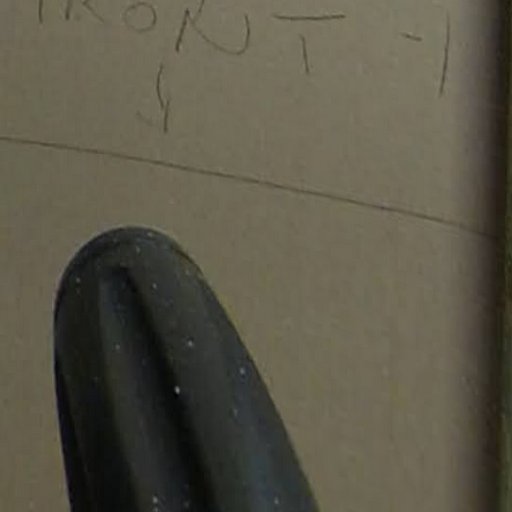 FRONT -1